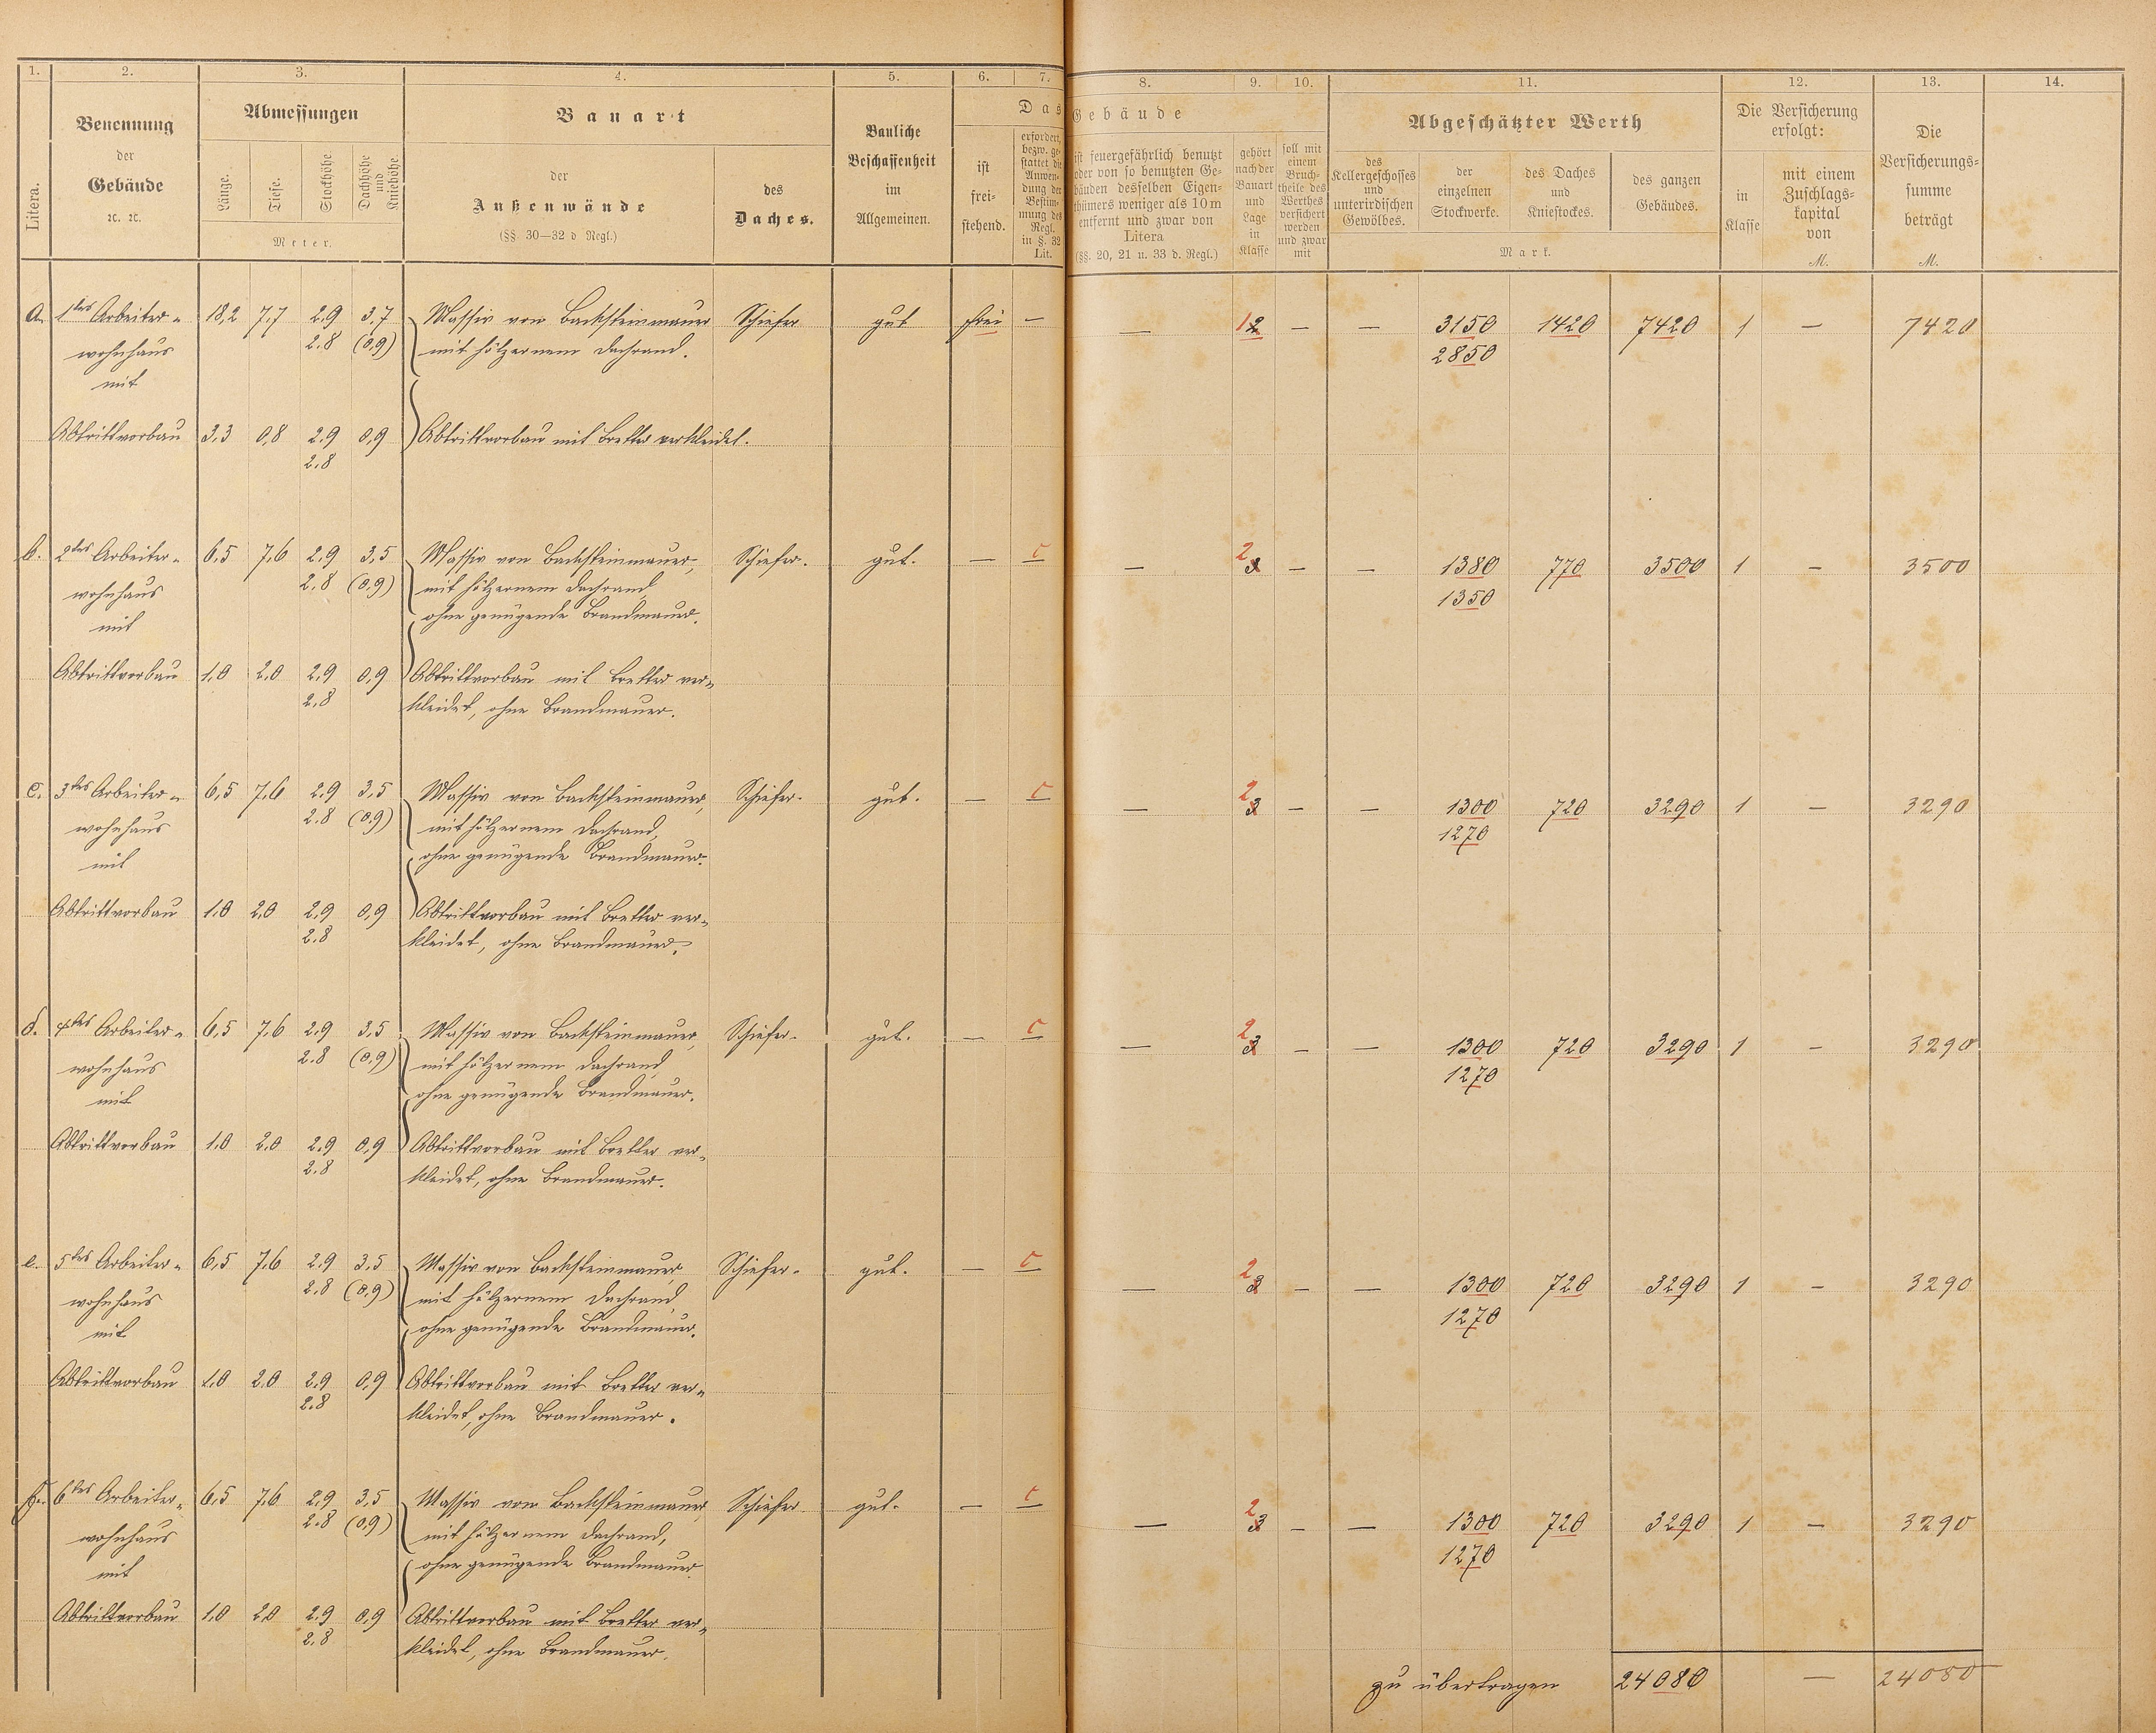 1. 2. 3. 4. 5. 6. 7. 8. 9. 10. 11. 12. 13. 14.
Litera.
Benennung
der
Gebäude
ꝛc. ꝛc.
Abmessungen
Länge.
Tiefe.
Stockhöhe
Dachhöhe
und
Kniehöhe.
Meter.
Bauart
der
Außenwände
(§§ 30—32 d Regl.)
des
Daches.
Bauliche
Beschaffenheit
im
Allgemeinen.
Das Gebäude
ist
frei-
stehend.
erfordert,
bezw. ge-
stattet die
Anwen-
dung der
Bestim-
mung des
Regl.
in §. 32
Lit.
ist feuergefährlich benutzt
oder von so benutzten Ge-
bäuden desselben Eigen-
thümers weniger als 10 m
entfernt und zwar von
Litera
(§§. 20, 21 u. 33 d. Regl.)
gehört
nach der
Bauart
und
Lage
in
Klasse
soll mit
einem
Bruch-
theile des
Werthes
versichert
werden
und zwar
mit
Abgeschätzter Werth
des
Kellergeschosses
und
unterirdischen
Gewölbes.
der
einzelnen
Stockwerke.
des Daches
und
Kniestockes.
des ganzen
Gebäudes.
Mark.
Die Versicherung
erfolgt:
in
Klasse
mit einem
Zuschlags-
kapital
von
M.
Die
Versicherungs-
summe
beträgt
M.
a. 1tes Arbeiter- 18,2 7,7 2,9 3,7 Massiv von Backsteinmauer Schiefer gut frei — — 12 — — 3150 1420 7420 1 — 7420
wohnhaus 2.8 (0,9) mit hölzernem Dachrand. 2850
mit
Abtrittvorbau 3,3 0,8 2,9 0,9 Abtrittvorbau mit Bretter verkleidet.
2.8
b. 2tes Arbeiter- 6,5 7,6 2,9 3,5 Massiv von Backsteinmauer, Schiefer. gut. — c — 2 3 — — 1380 770 3500 1 — 3500
wohnhaus 2.8 (0,9) mit hölzernem Dachrand, 1350
mit ohne genügende Brandmauer.
Abtrittvorbau 1,0 2,0 2,9 0,9 Abtrittvorbau mit Bretter ver-
2,8 kleidet, ohne Brandmauer.
c. 3tes Arbeiter- 6,5 7,6 2,9 3,5 Massiv von Backsteinmauer, Schiefer. gut. — c — 2 3 — — 1300 720 3290 1 — 3290
wohnhaus 2.8 (0,9) mit hölzernem Dachrand, 1270
mit ohne genügende Brandmauer.
Abtrittvorbau 1,0 2,0 2,9 0,9 Abtrittvorbau mit Bretter ver-
2.8 kleidet, ohne Brandmauer.
d. 4tes Arbeiter- 6,5 7,6 2,9 3,5 Massiv von Backsteinmauer, Schiefer. gut. — c — 2 3 — — 1300 720 3290 1 — 3290
wohnhaus 2.8 (0,9) mit hölzernem Dachrand, 1270
mit ohne genügende Brandmauer.
Abtrittvorbau 1,0 2,0 2,9 0,9 Abtrittvorbau mit Bretter ver-
2.8 kleidet, ohne Brandmauer.
e. 5tes Arbeiter- 6,5 7,6 2,9 3,5 Massiv von Backsteinmauer, Schiefer. gut. — c — 2 3 — — 1300 720 3290 1 — 3290
wohnhaus 2.8 (0,9) mit hölzernem Dachrand, 1270
mit ohne genügende Brandmauer.
Abtrittvorbau 1,0 2,0 2,9 0,9 Abtrittvorbau mit Bretter ver-
2.8 kleidet, ohne Brandmauer.
f. 6tes Arbeiter- 6,5 7,6 2,9 3,5 Massiv von Backsteinmauer, Schiefer gut. — c — 2 3 — — 1300 720 3290 1 — 3290
wohnhaus 2.8 (0,9) mit hölzernem Dachrand, 1270
mit ohne genügende Brandmauer.
Abtrittvorbau 1,0 2,0 2,9 0,9 Abtrittvorbau mit Bretter ver-
2.8 kleidet, ohne Brandmauer.
zu übertragen 24080 — 24080